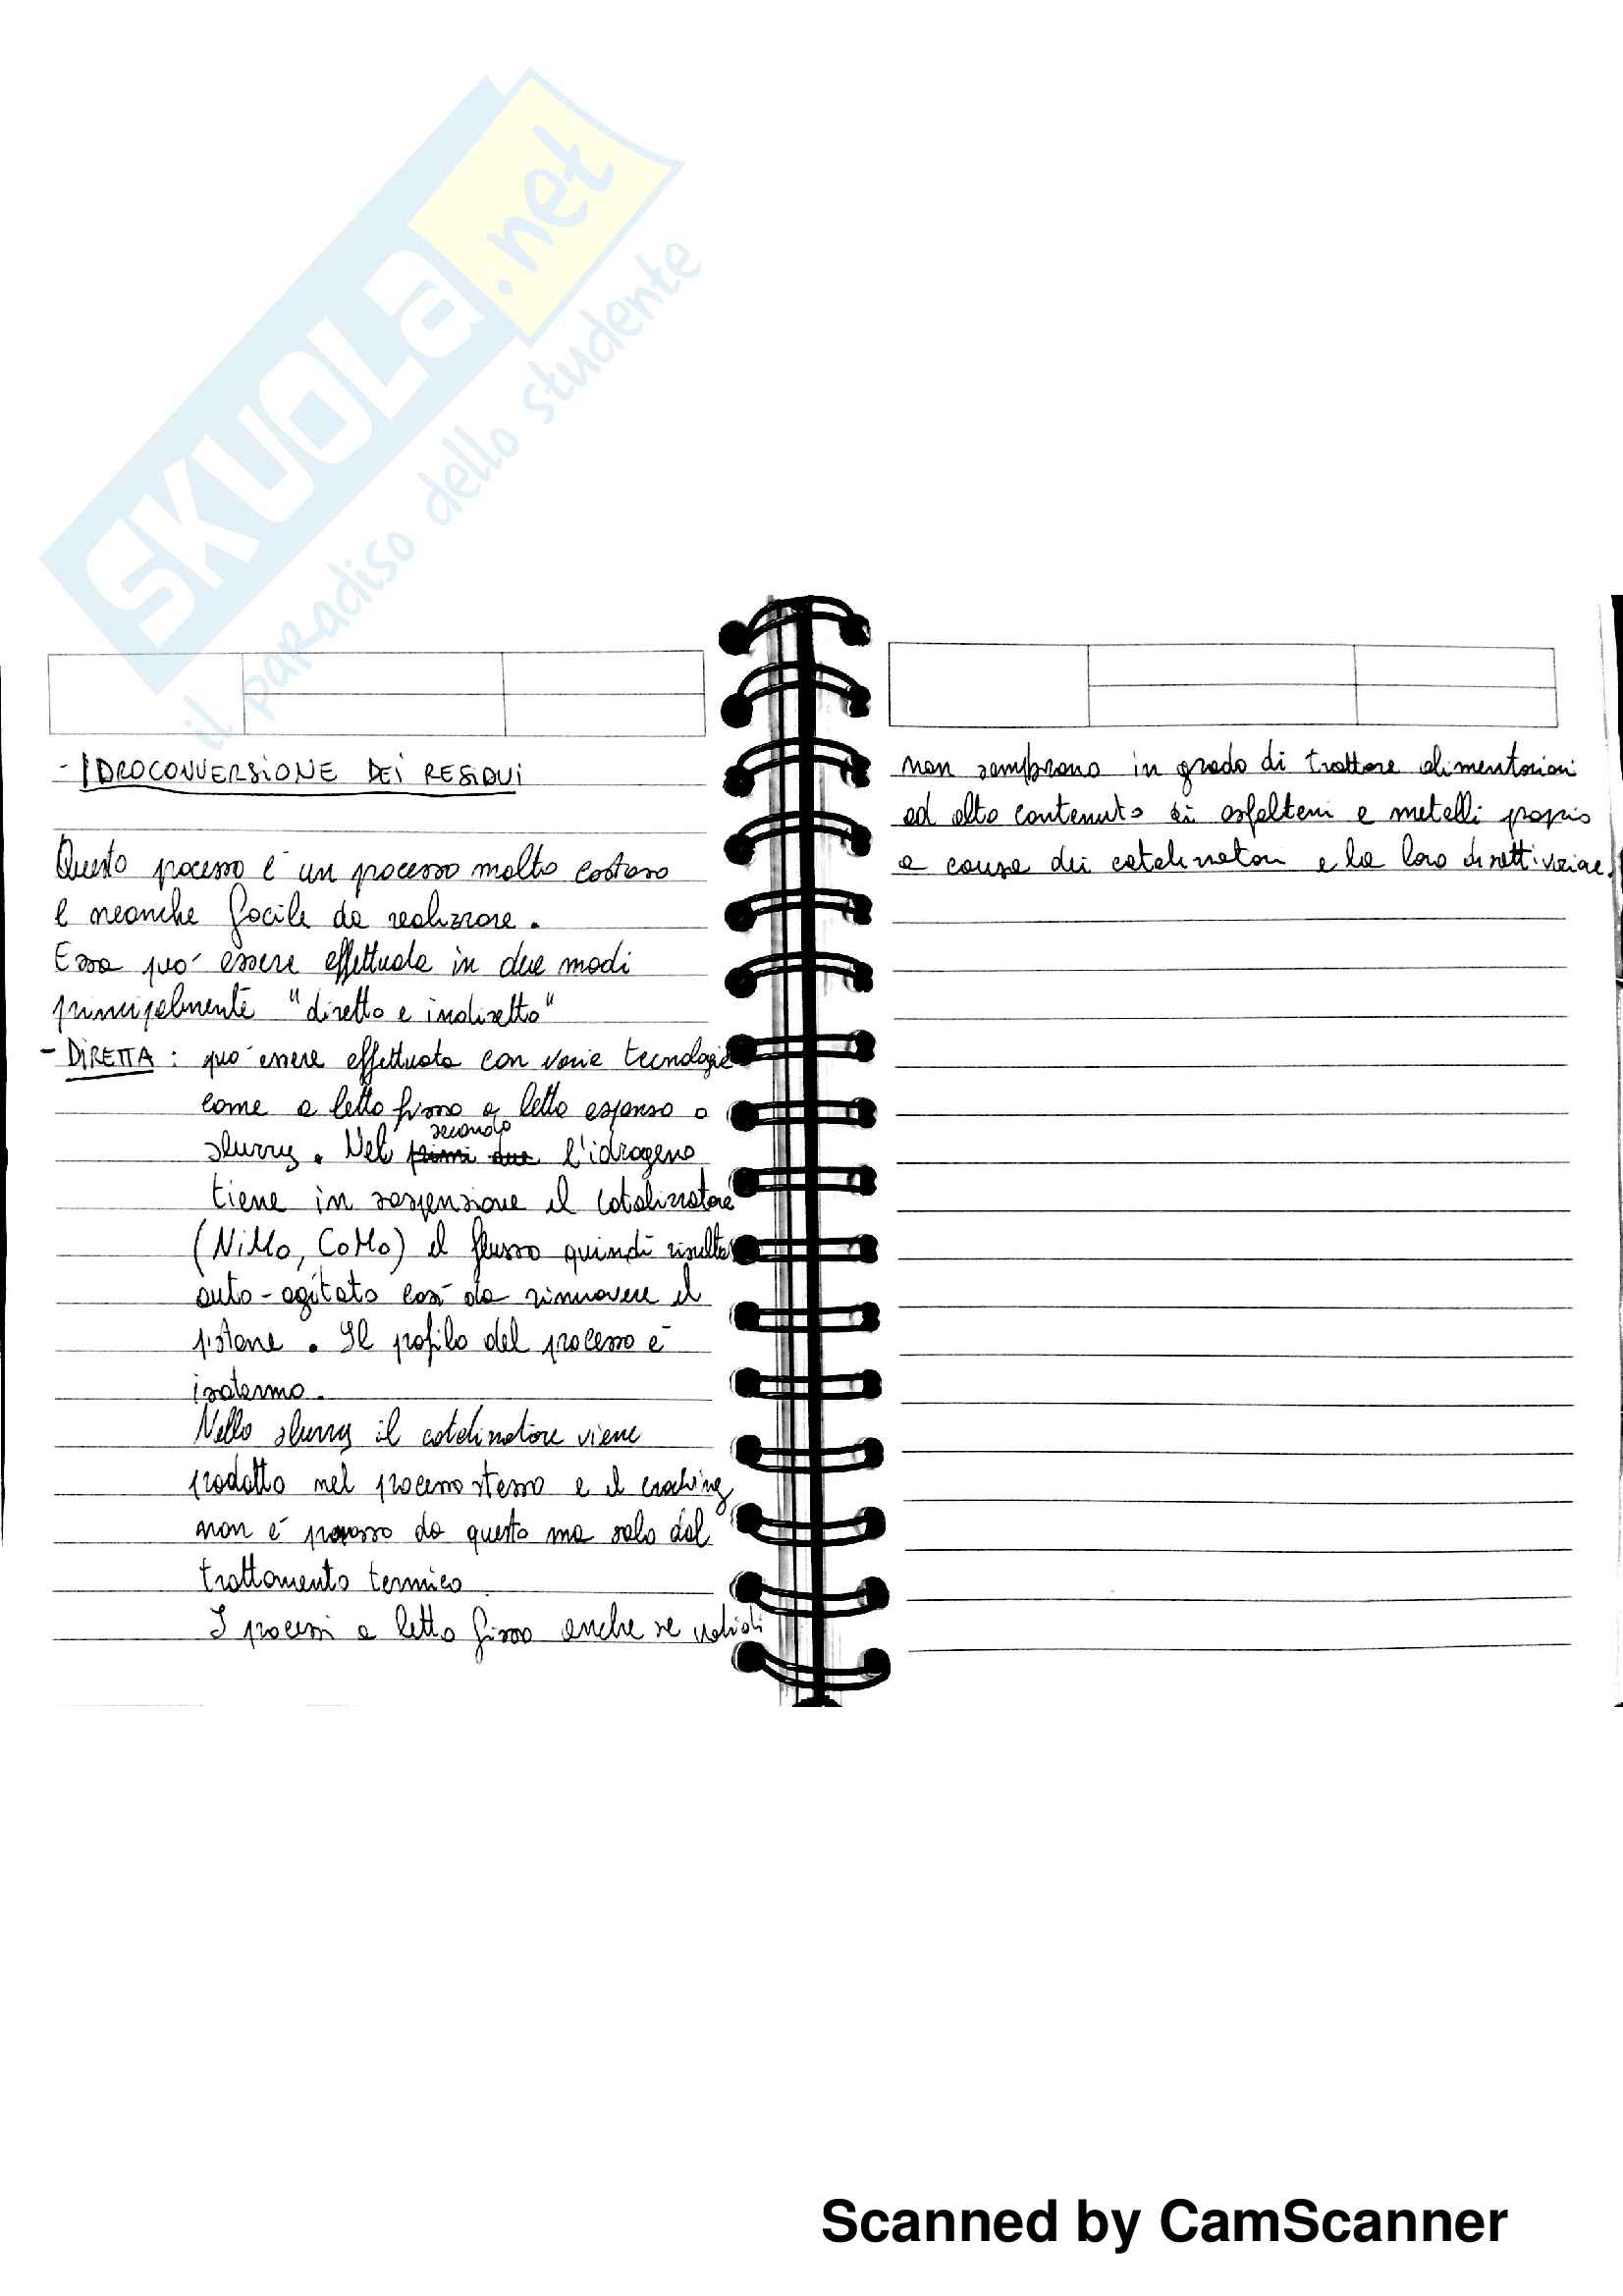 SKUOLa.net
il paradiso dello studente
- IDROCONVERSIONE DEI RESIDUI
Questo processo è un processo molto costoso
e neanche facile da realizzare.
Essa può essere effettuata in due modi
principalmente "diretto e indiretto"
- DIRETTA : può essere effettuata con varie tecnologie
come a letto fisso a letto espanso o
slurry. Nel primi due secondo l'idrogeno
tiene in sospensione il catalizzatore
(NiMo, CoMo) il flusso quindi risulta
auto-agitato così da rimuovere il
pistone. Il profilo del processo è
isotermo.
Nello slurry il catalizzatore viene
prodotto nel processo stesso e il cracking
non è da questo ma solo dal
trattamento termico
I processi a letto fisso anche se validi
non sembrano in grado di trattare alimentazioni
ad alto contenuto di asfalteni e metalli proprio
a causa dei catalizzatori e la loro disattivazione.
Scanned by CamScanner